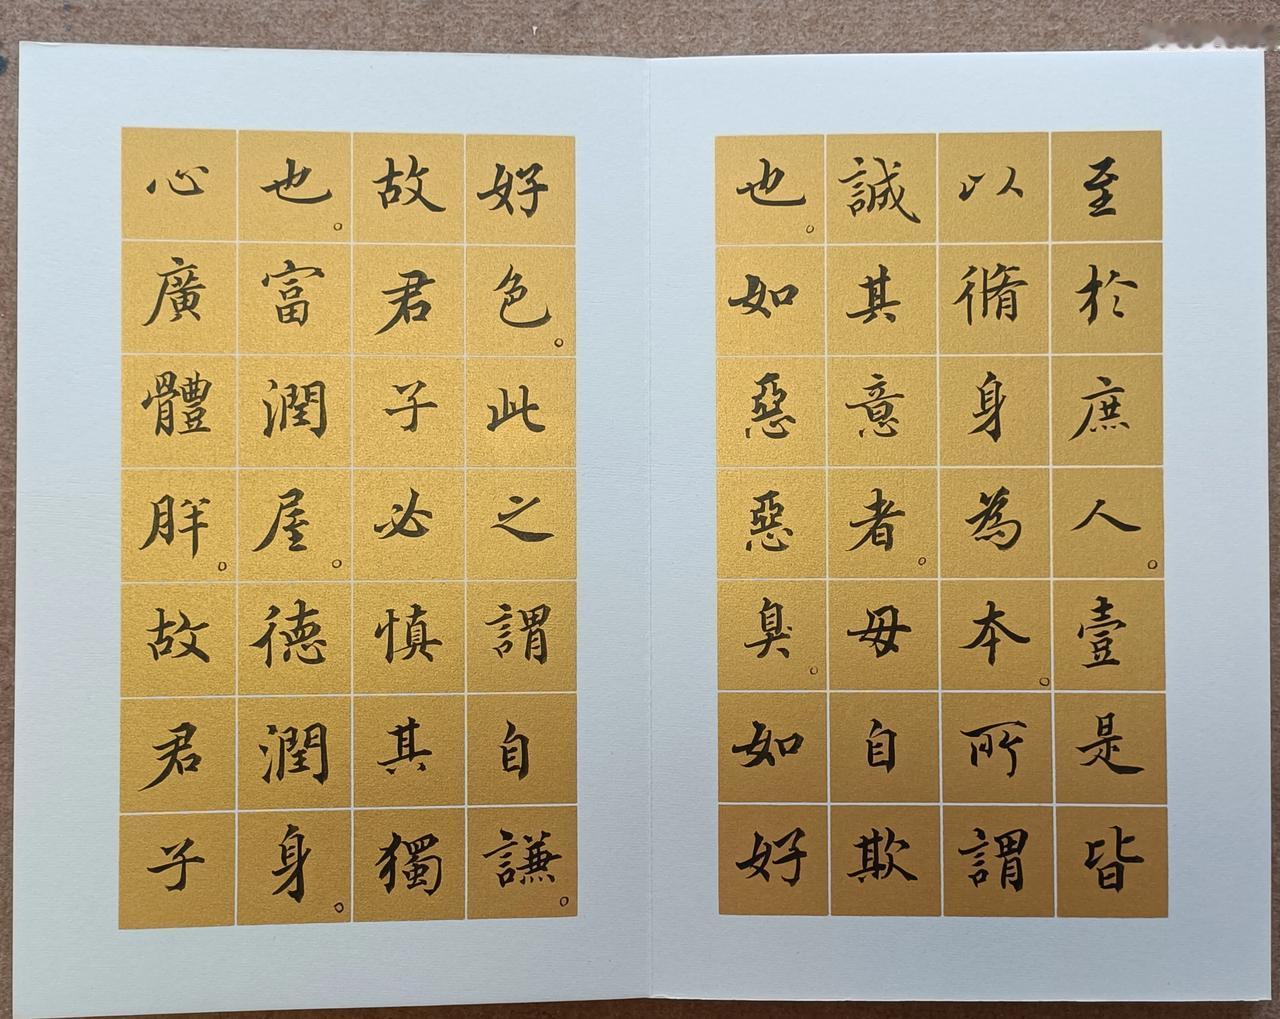 至於庶人。壹是皆
以脩身為本。所謂
誠其意者。毋自欺
也。如惡惡臭。如好
好色。此之謂自謙。
故君子必慎其獨
也。富潤屋。德潤身。
心廣體胖。故君子